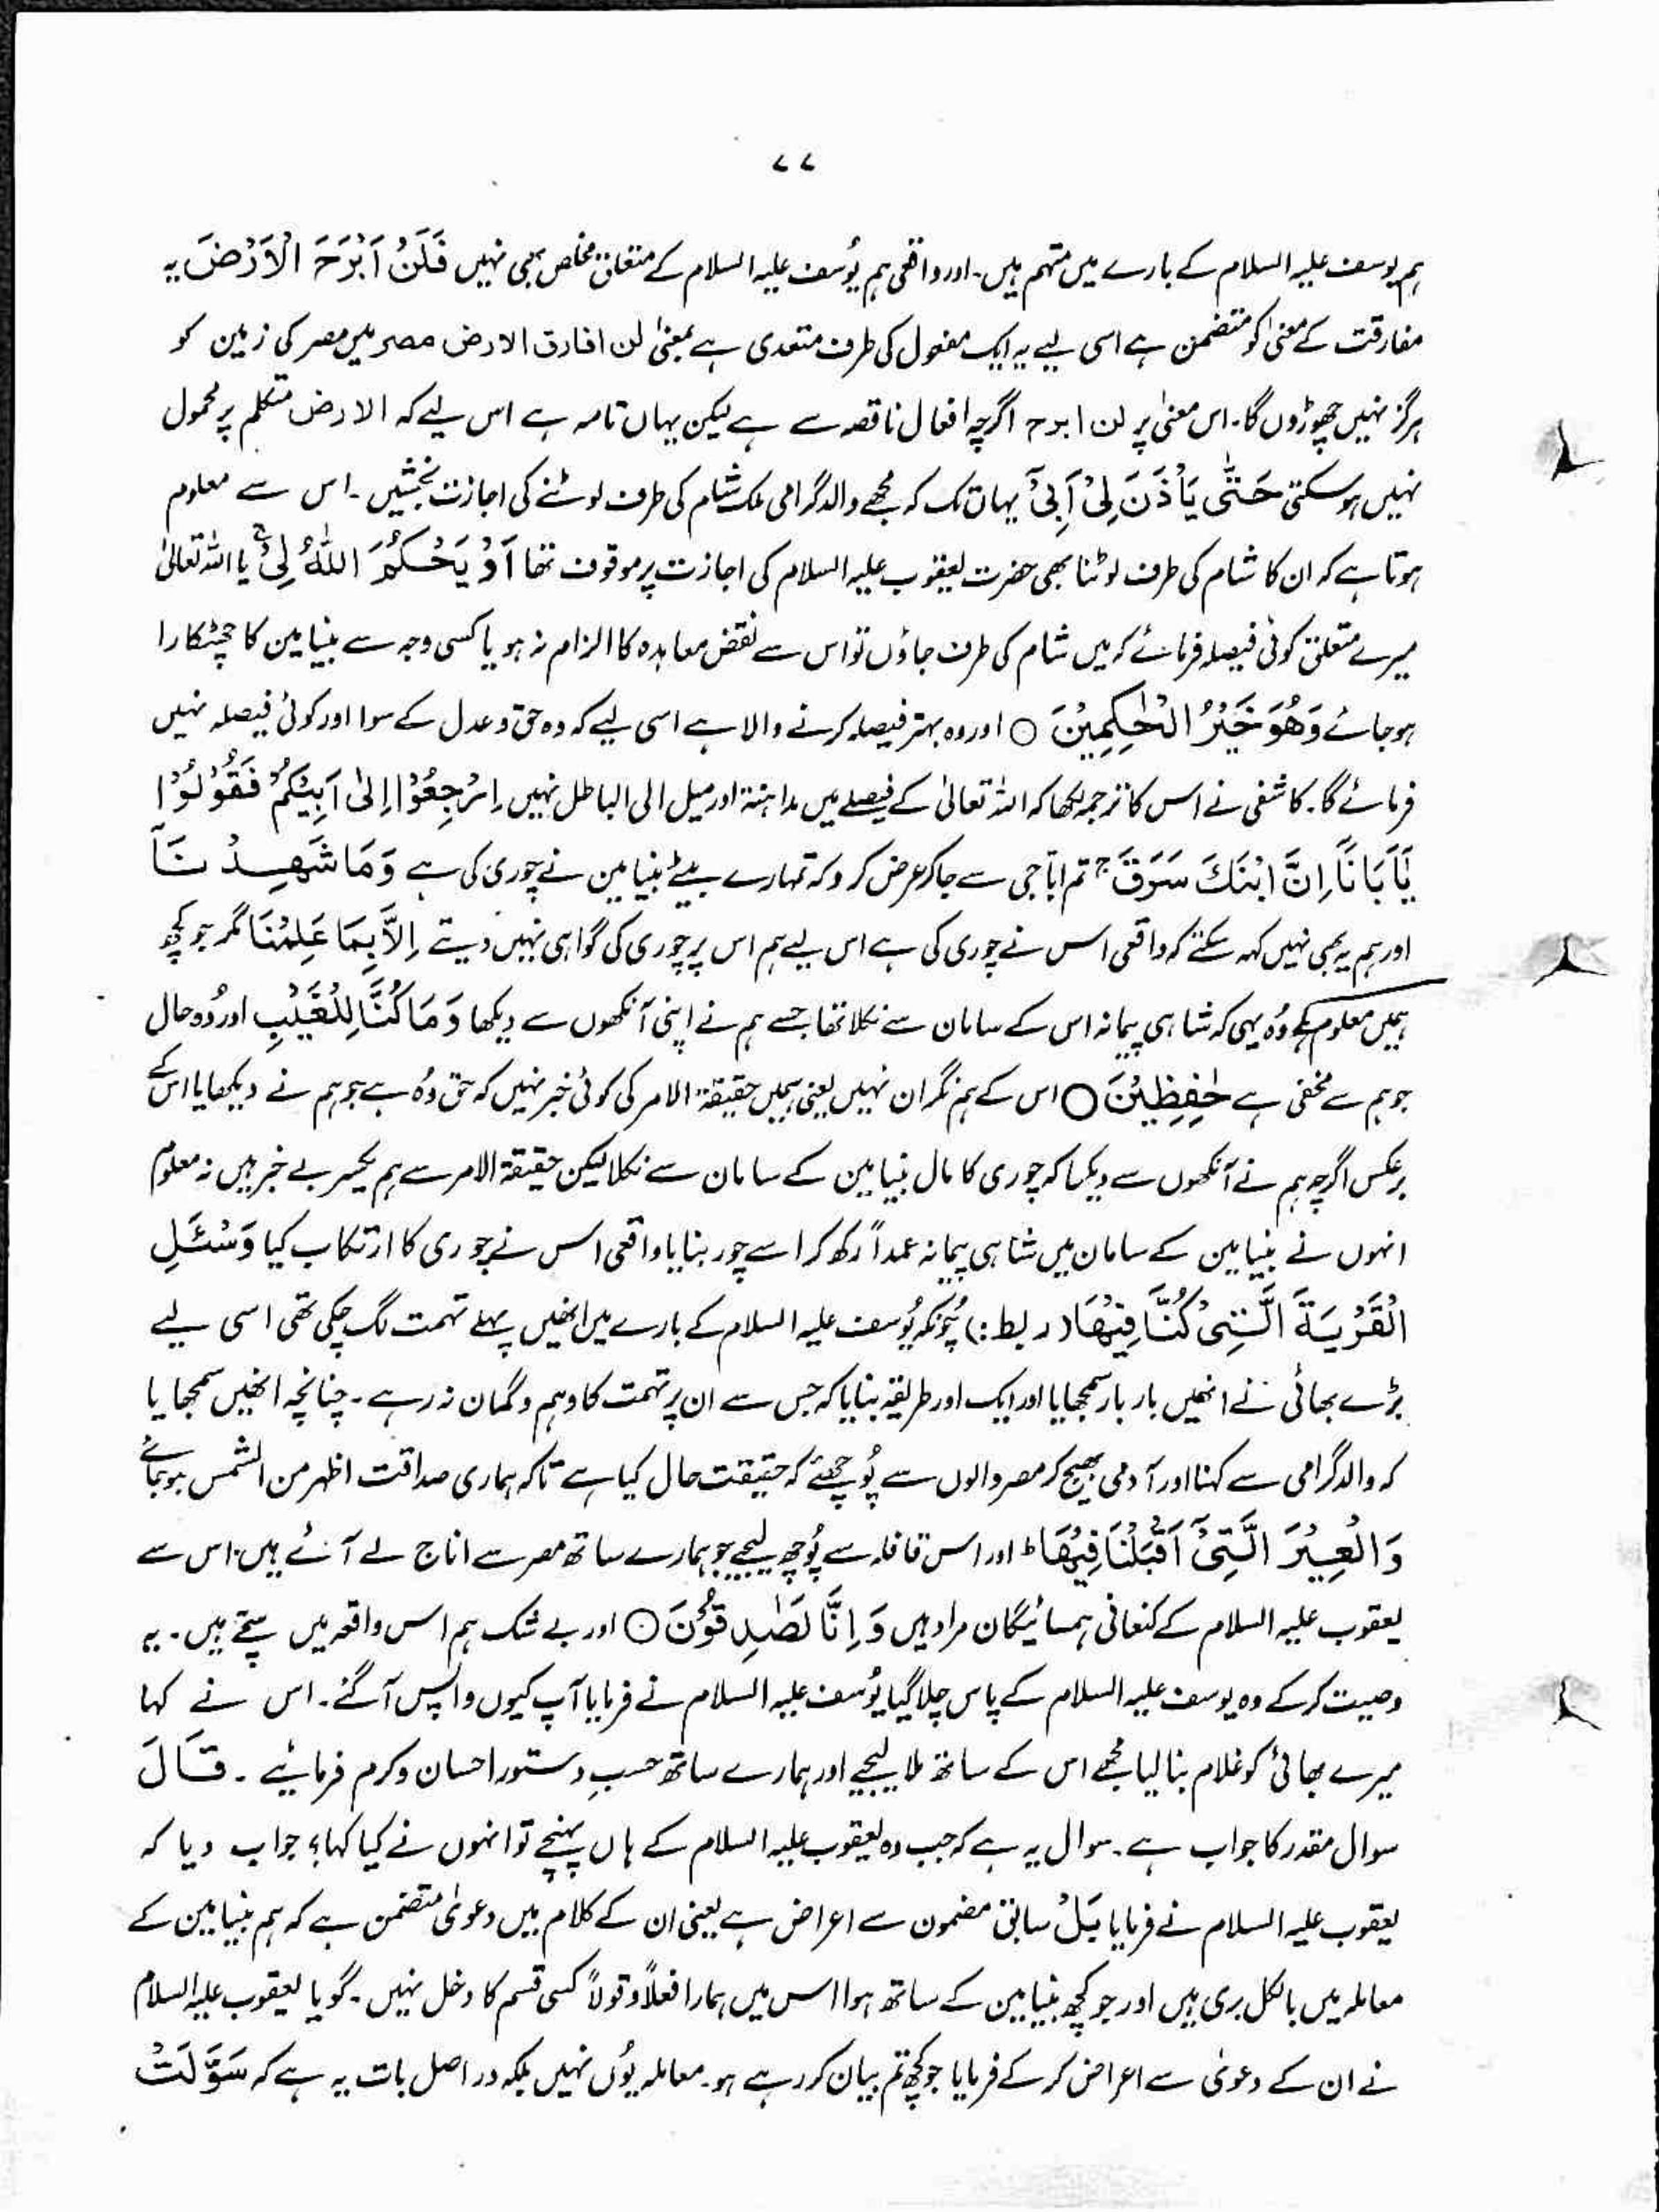 ۷۷
ہم یوسف علیہ السلام کے بارے میں متہم ہیں۔ اور واقعی ہم یُوسف علیہ السلام کے متعلق مخلص بھی نہیں فَلَنْ اَبْرَحَ الْاَرْضَ یہ
مفارقت کے معنیٰ کو متضمن ہے اسی لیے یہ ایک مفعول کی طرف متعدی ہے بمعنیٰ لن افارق الارض مصر میں مصر کی زمین کو
ہرگز نہیں چھوڑوں گا۔ اس معنیٰ پر لن ابرح اگرچہ افعال ناقصہ سے ہے لیکن یہاں تامہ ہے اس لیے کہ الارض متکلم پر محمول
نہیں ہو سکتی حَتّٰی یَاْذَنَ لِیْٓ اَبِیْٓ یہاں تک کہ مجھے والد گرامی ملک شام کی طرف لوٹنے کی اجازت بخشیں۔ اس سے معلوم
ہوتا ہے کہ ان کا شام کی طرف لوٹنا بھی حضرت یعقوب علیہ السلام کی اجازت پر موقوف تھا اَوْ یَحْکُمَ اللّٰہُ لِیْ ج یا اللہ تعالیٰ
میرے متعلق کوئی فیصلہ فرمائے کہ میں شام کی طرف جاؤں تو اس سے نقض معاہدہ کا الزام نہ ہو یا کسی وجہ سے بنیامین کا چھٹکارا
ہو جائے وَھُوَ خَیْرُ الْحٰکِمِیْنَ ○ اور وہ بہتر فیصلہ کرنے والا ہے اسی لیے کہ وہ حق و عدل کے سوا اور کوئی فیصلہ نہیں
فرمائے گا۔ کاشفی نے اس کا ترجمہ لکھا کہ اللہ تعالیٰ کے فیصلے میں مداہنۃ اور میل الی الباطل نہیں اِرْجِعُوْٓا اِلٰٓی اَبِیْکُمْ فَقُوْلُوْا
یٰٓاَبَانَآ اِنَّ ابْنَکَ سَرَقَ ج تم ابّا جی سے جا کر عرض کرو کہ تمہارے بیٹے بنیامین نے چوری کی ہے وَمَا شَھِدْنَآ
اور ہم یہ بھی نہیں کہہ سکتے کہ واقعی اس نے چوری کی ہے اس لیے ہم اس پر چوری کی گواہی نہیں دیتے اِلَّا بِمَا عَلِمْنَا مگر جو کچھ
ہمیں معلوم ہے وُہ یہی کہ شاہی پیمانہ اس کے سامان سے نکلا تھا جسے ہم نے اپنی آنکھوں سے دیکھا وَمَا کُنَّا لِلْغَیْبِ اور وُہ حال
جو ہم سے مخفی ہے حٰفِظِیْنَ ○ اس کے ہم نگران نہیں یعنی ہمیں حقیقۃ الامر کی کوئی خبر نہیں کہ حق وُہ ہے جو ہم نے دیکھا یا اس کے
برعکس اگرچہ ہم نے آنکھوں سے دیکھا کہ چوری کا مال بنیامین کے سامان سے نکلا لیکن حقیقۃ الامر سے ہم یکسر بے خبر ہیں نہ معلوم
انہوں نے بنیامین کے سامان میں شاہی پیمانہ عمداً رکھ کر اسے چور بنایا واقعی اس نے چوری کا ارتکاب کیا وَسْئَلِ
الْقَرْیَۃَ الَّتِیْ کُنَّا فِیْھَا (ربط:) چُونکہ یُوسف علیہ السلام کے بارے میں انھیں پہلے تہمت لگ چکی تھی اسی لیے
بڑے بھائی نے انھیں بار بار سمجھایا اور ایک اور طریقہ بتایا کہ جس سے ان پر تہمت کا وہم و گمان نہ رہے۔ چنانچہ انھیں سمجھایا
کہ والد گرامی سے کہنا اور آدمی بھیج کر مصر والوں سے پُوچھئے کہ حقیقت حال کیا ہے تاکہ ہماری صداقت اظہر من الشمس ہو جائے
وَالْعِیْرَ الَّتِیْٓ اَقْبَلْنَا فِیْھَا ط اور اس قافلہ سے پُوچھ لیجیے جو ہمارے ساتھ مصر سے اناج لے آئے ہیں، اس سے
یعقوب علیہ السلام کے کنعانی ہمسائیگان مراد ہیں وَاِنَّا لَصٰدِقُوْنَ ○ اور بے شک ہم اس واقعہ میں سچّے ہیں۔ یہ
وصیت کر کے وہ یوسف علیہ السلام کے پاس چلا گیا یُوسف علیہ السلام نے فرمایا آپ کیوں واپس آ گئے۔ اس نے کہا
میرے بھائی کو غلام بنا لیا مجھے اس کے ساتھ ملا لیجیے اور ہمارے ساتھ حسبِ دستور احسان و کرم فرمائیے۔ قَالَ
سوال مقدر کا جواب ہے۔ سوال یہ ہے کہ جب وہ یعقوب علیہ السلام کے ہاں پہنچے تو انہوں نے کیا کہا؟ جواب دیا کہ
یعقوب علیہ السلام نے فرمایا بَلْ سابق مضمون سے اعراض ہے یعنی ان کے کلام میں دعویٰ متضمن ہے کہ ہم بنیامین کے
معاملہ میں بالکل بری ہیں اور جو کچھ بنیامین کے ساتھ ہوا اس میں ہمارا فعلاً و قولاً کسی قسم کا دخل نہیں۔ گویا یعقوب علیہ السلام
نے ان کے دعویٰ سے اعراض کر کے فرمایا جو کچھ تم بیان کر رہے ہو۔ معاملہ یُوں نہیں بلکہ در اصل بات یہ ہے کہ سَوَّلَتْ